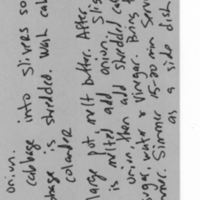 onion.
cabbage into slivers so
bage is shredded. Wash cab
colander
large pot, melt butter. After
is melted add onion. Slig
onion, then add shredded ca
sugar, water & vinegar. Bring t
Simmer 15-20 min. Serv
as a side dish